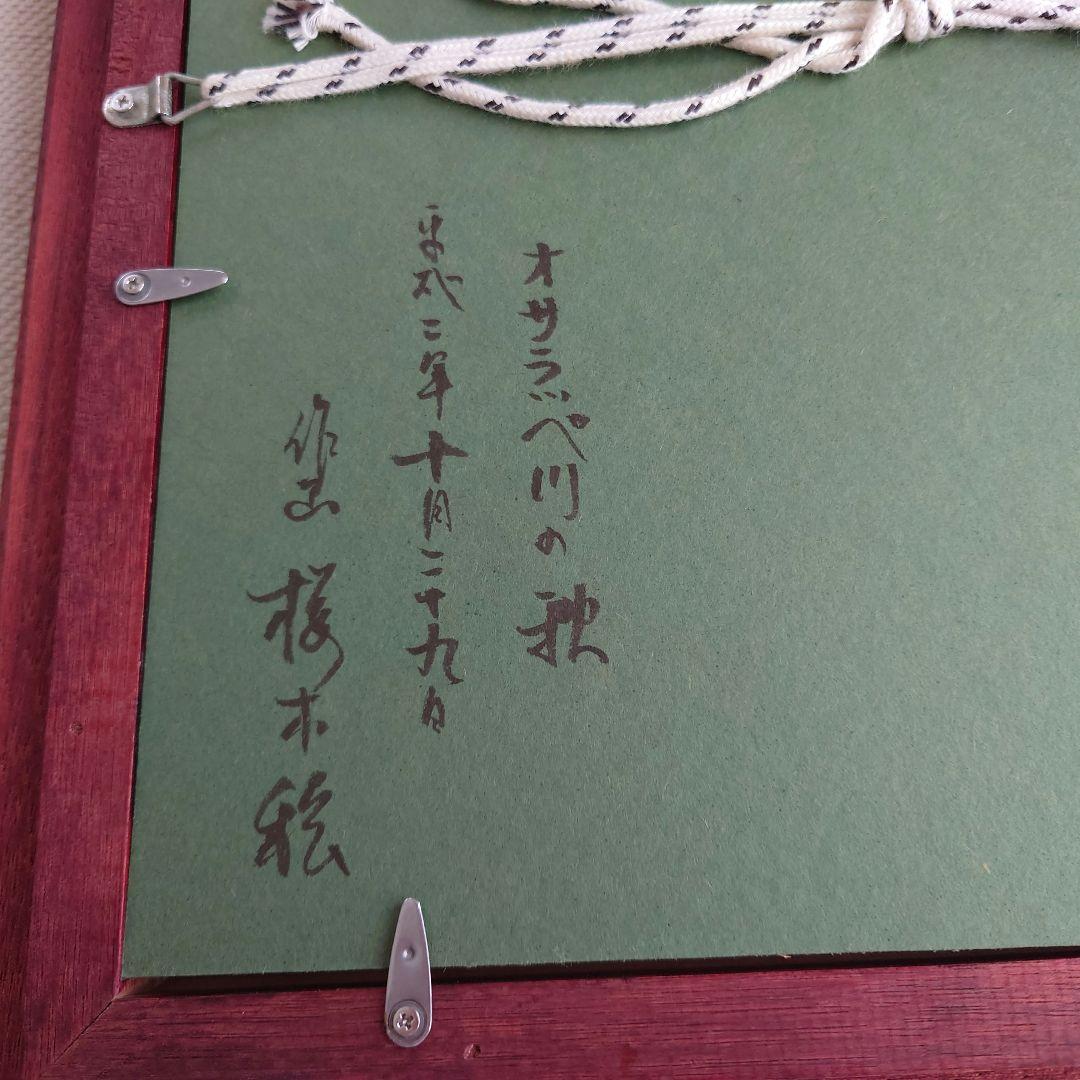 オサラッペ川の歌
平成二年十月二十九日
作品 桜木